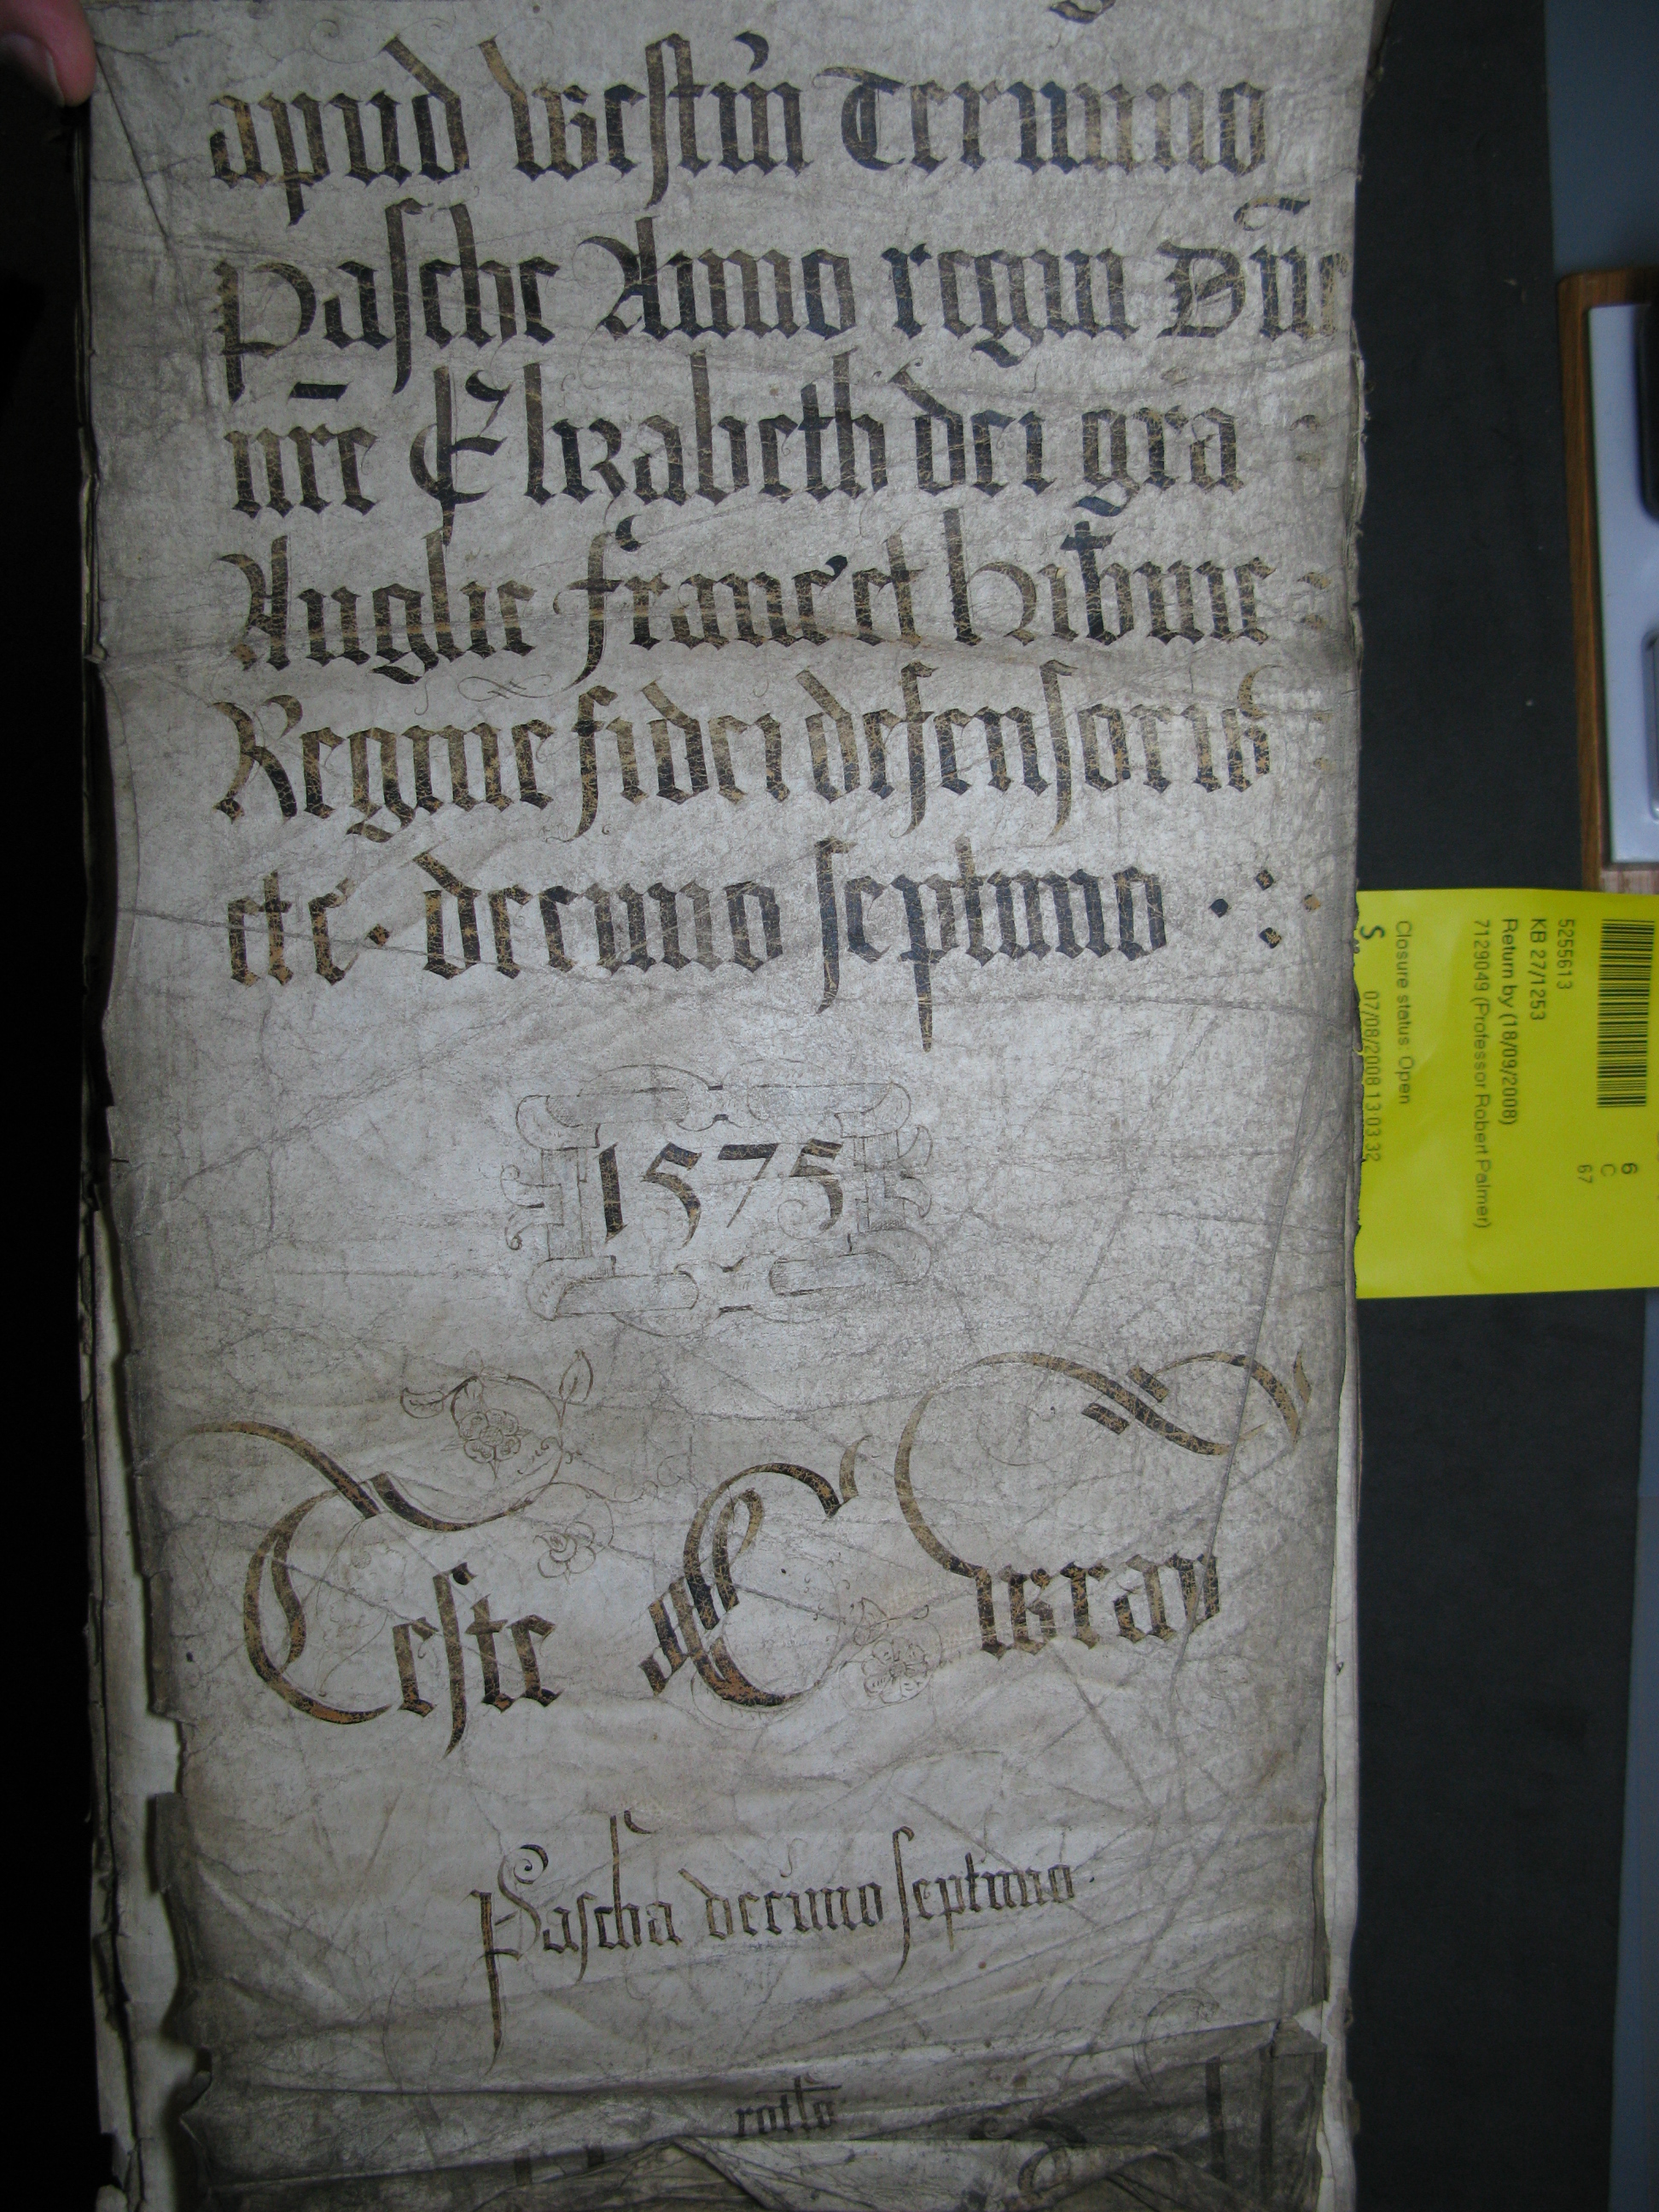 apud Westm̄ Termino
Pasche Anno regni Dn̄e
nr̄e Elizabeth dei gr̄a
Anglie Franc' et Hib̄nie
Regine fidei defensoris
etc · decimo septimo · :·
1575
Teste C Wray
Pascha decimo septimo ·
rotl̄o
5255613
KB 27/1253
Return by (18/09/2008)
7129049 (Professor Robert Palmer)
Closure status: Open
S
07/08/2008 13:03:32
6
C
67